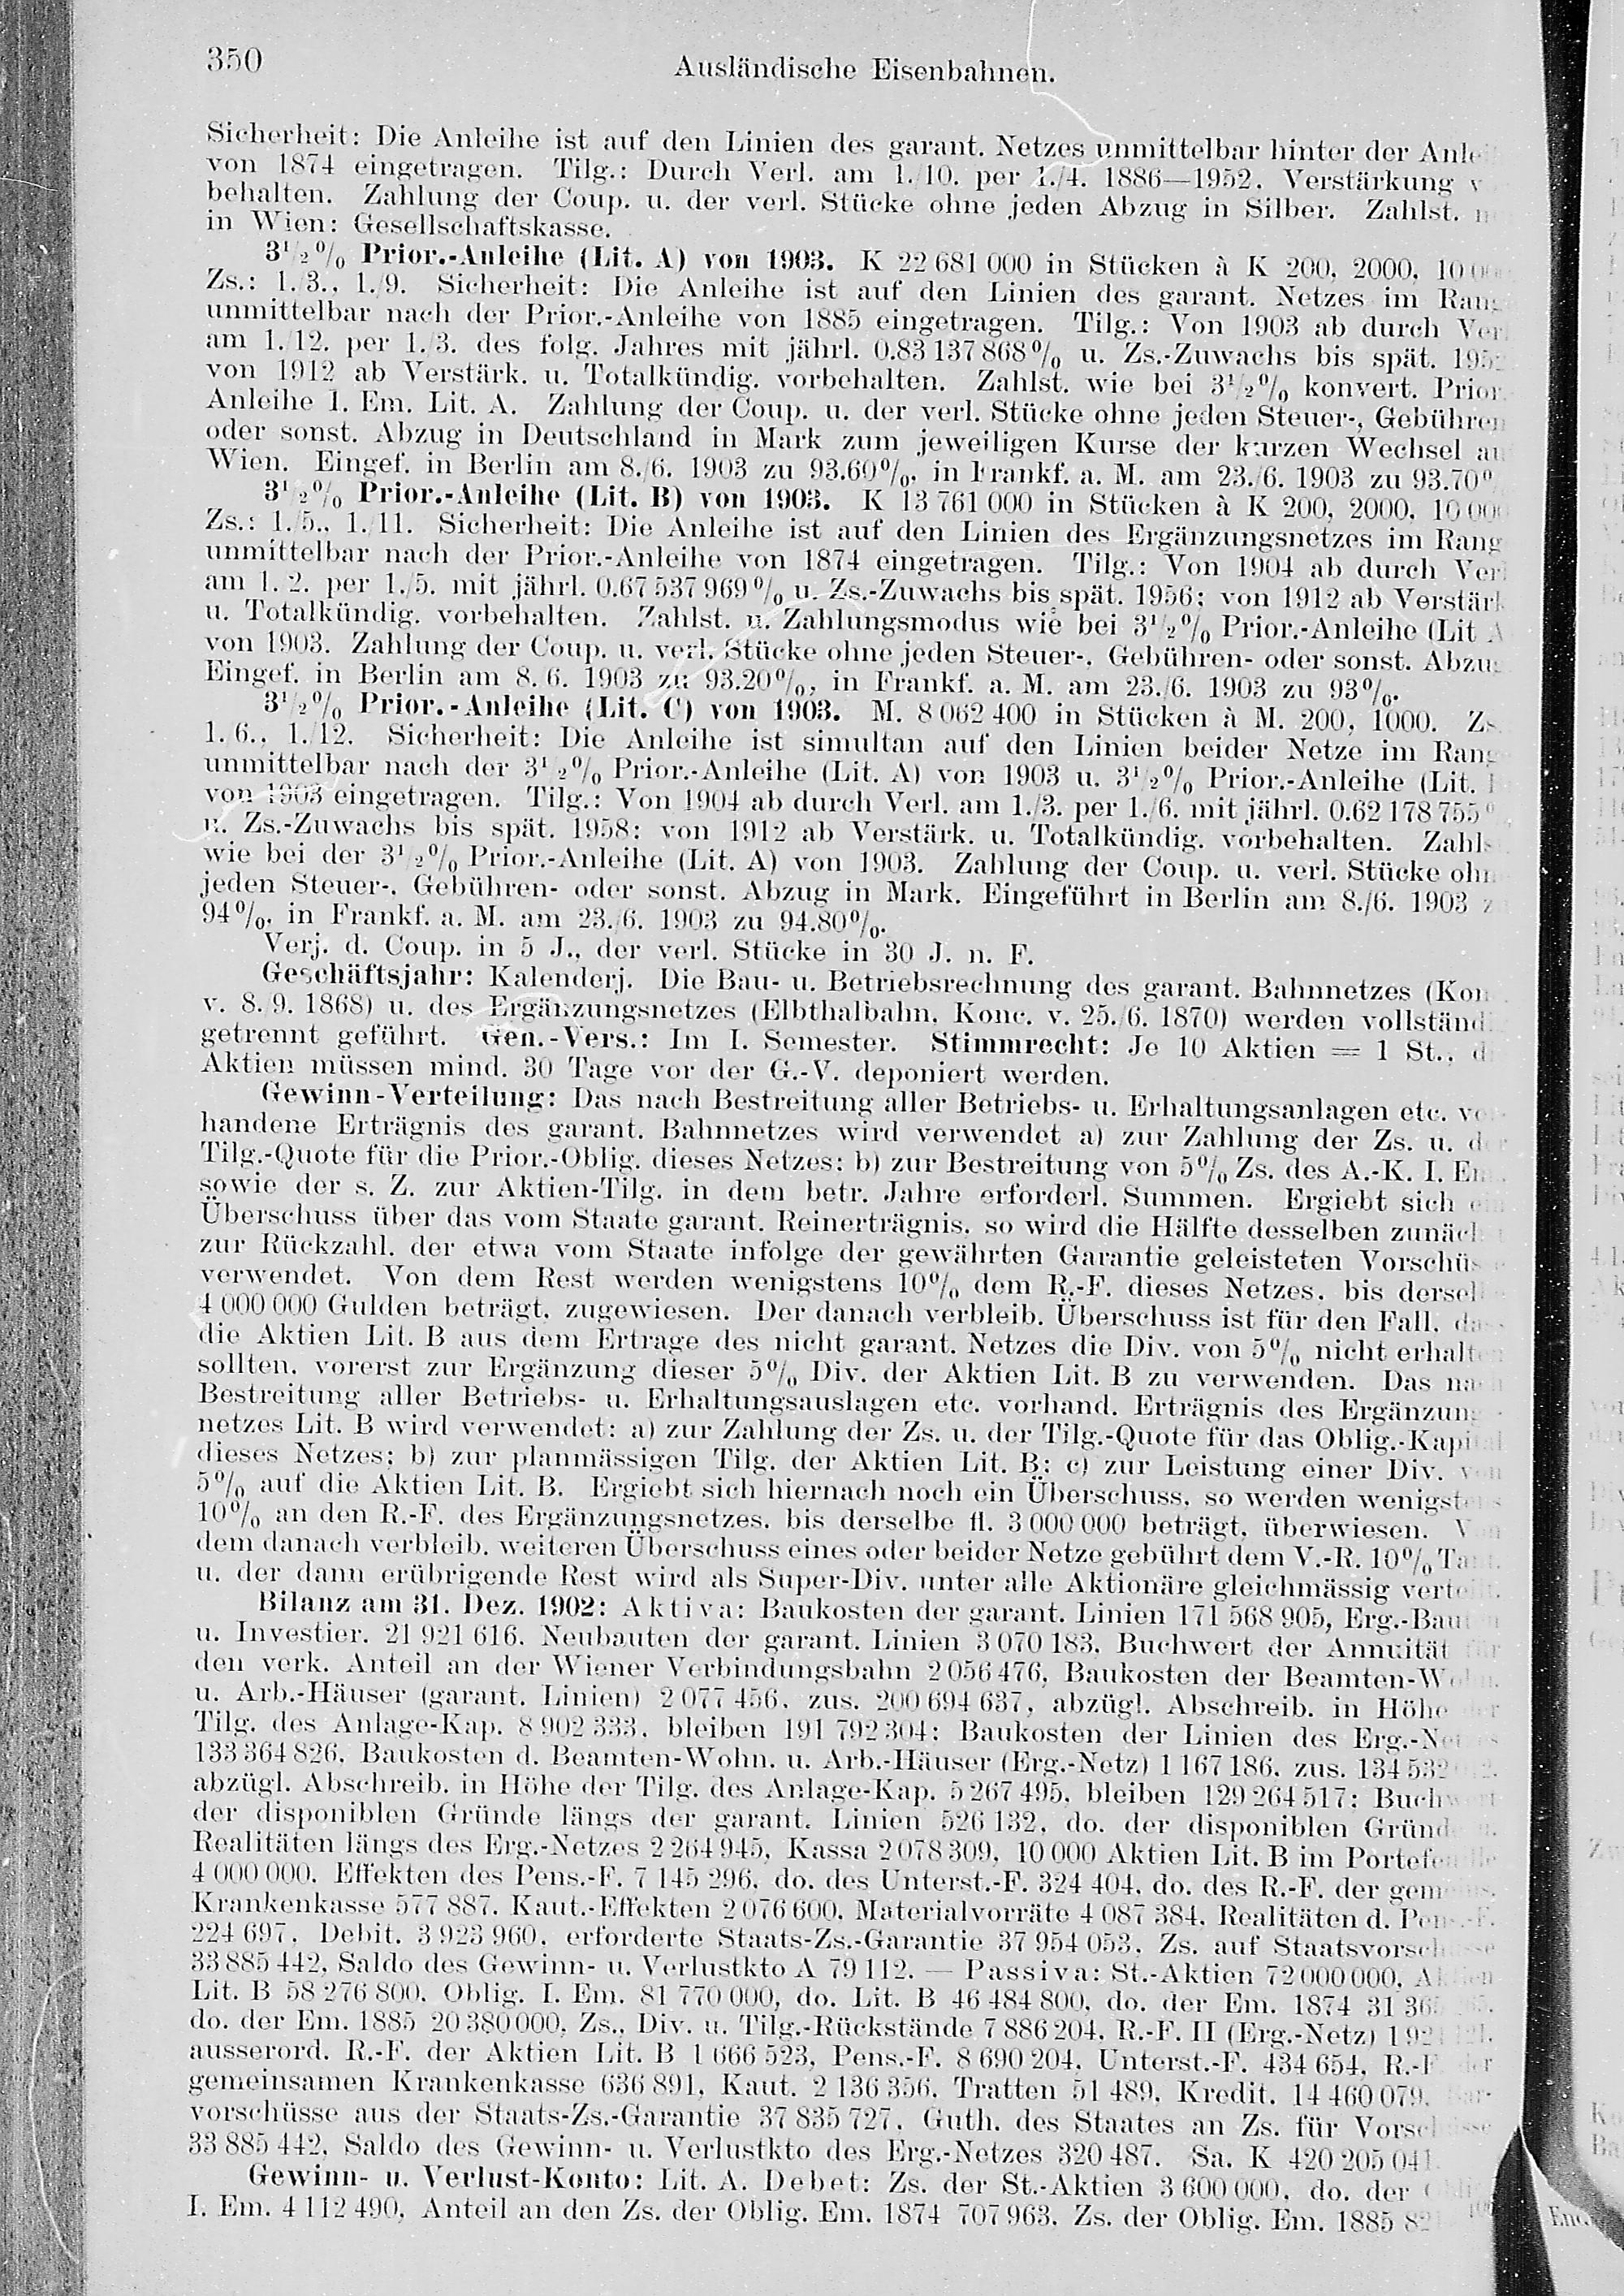 350
Ausländische Eisenbahnen.
Sicherheit: Die Anleihe ist auf den Linien des garant. Netzes unmittelbar hinter der
von 1874 eingetragen. Tilg.: Durch Verl. am 1./10. per 1./4. 1886—1952. Verstärkung
behalten. Zahlung der Coup. u. der verl. Stücke ohne jeden Abzug in Silber. Zahlst.
in Wien: Gesellschaftskasse.
3½% Prior.-Anleihe (Lit. A) von 1903. K 22 681 000 in Stücken à K 200, 2000, 10 000
Zs.: 1./3., 1./9. Sicherheit: Die Anleihe ist auf den Linien des garant. Netzes im Rang
unmittelbar nach der Prior.-Anleihe von 1885 eingetragen. Tilg.: Von 1903 ab durch Verl
am 1./12. per 1./3. des folg. Jahres mit jährl. 0.83 137 868% u. Zs.-Zuwachs bis spät.
von 1912 ab Verstärk. u. Totalkündig. vorbehalten. Zahlst. wie bei 3½% konvert. Prior.
Anleihe I. Em. Lit. A. Zahlung der Coup. u. der verl. Stücke ohne jeden Steuer-, Gebühren
oder sonst. Abzug in Deutschland in Mark zum jeweiligen Kurse der kurzen Wechsel au
Wien. Eingef. in Berlin am 8./6. 1903 zu 93.60%, in Frankf. a. M. am 23./6. 1903 zu 93.70%
3½% Prior.-Anleihe (Lit. B) von 1903. K 13 761 000 in Stücken à K 200, 2000, 10 000
Zs.: 1./5., 1./11. Sicherheit: Die Anleihe ist auf den Linien des Ergänzungsnetzes im Rang
unmittelbar nach der Prior.-Anleihe von 1874 eingetragen. Tilg.: Von 1904 ab durch Verl
am 1. 2. per 1./5. mit jährl. 0.67 537 969% u. Zs.-Zuwachs bis spät. 1956; von 1912 ab Verstärk
u. Totalkündig. vorbehalten. Zahlst. u. Zahlungsmodus wie bei 3½% Prior.-Anleihe (Lit A
von 1903. Zahlung der Coup. u. verl. Stücke ohne jeden Steuer-, Gebühren- oder sonst. Abzug
Eingef. in Berlin am 8. 6. 1903 zu 93.20%, in Frankf. a. M. am 23./6. 1903 zu 93%.
3½% Prior.-Anleihe (Lit. C) von 1903. M. 8 062 400 in Stücken à M. 200, 1000. Zs.
1. 6., 1./12. Sicherheit: Die Anleihe ist simultan auf den Linien beider Netze im Rang
unmittelbar nach der 3½% Prior.-Anleihe (Lit. A) von 1903 u. 3½% Prior.-Anleihe (Lit.
von 1903 eingetragen. Tilg.: Von 1904 ab durch Verl. am 1./3. per 1./6. mit jährl. 0.62 178 755%
u. Zs.-Zuwachs bis spät. 1958; von 1912 ab Verstärk. u. Totalkündig. vorbehalten. Zahlst.
wie bei der 3½% Prior.-Anleihe (Lit. A) von 1903. Zahlung der Coup. u. verl. Stücke ohne
jeden Steuer-, Gebühren- oder sonst. Abzug in Mark. Eingeführt in Berlin am 8./6. 1903
94%, in Frankf. a. M. am 23./6. 1903 zu 94.80%.
Verj. d. Coup. in 5 J., der verl. Stücke in 30 J. n. F.
Geschäftsjahr: Kalenderj. Die Bau- u. Betriebsrechnung des garant. Bahnnetzes (Kon
v. 8./9. 1868) u. des Ergänzungsnetzes (Elbthalbahn, Konc. v. 25./6. 1870) werden vollständ
getrennt geführt. Gen.-Vers.: Im I. Semester. Stimmrecht: Je 10 Aktien = 1 St.,
Aktien müssen mind. 30 Tage vor der G.-V. deponiert werden.
Gewinn-Verteilung: Das nach Bestreitung aller Betriebs- u. Erhaltungsanlagen etc. vor-
handene Erträgnis des garant. Bahnnetzes wird verwendet a) zur Zahlung der Zs. u. der
Tilg.-Quote für die Prior.-Oblig. dieses Netzes; b) zur Bestreitung von 5% Zs. des A.-K. I. Em.
sowie der s. Z. zur Aktien-Tilg. in dem betr. Jahre erforderl. Summen. Ergiebt sich ein
Überschuss über das vom Staate garant. Reinerträgnis, so wird die Hälfte desselben zunächst
zur Rückzahl. der etwa vom Staate infolge der gewährten Garantie geleisteten Vorschüsse
verwendet. Von dem Rest werden wenigstens 10% dem R.-F. dieses Netzes, bis derselbe
4 000 000 Gulden beträgt, zugewiesen. Der danach verbleib. Überschuss ist für den Fall, dass
die Aktien Lit. B aus dem Ertrage des nicht garant. Netzes die Div. von 5% nicht erhalten
sollten, vorerst zur Ergänzung dieser 5% Div. der Aktien Lit. B zu verwenden. Das nach
Bestreitung aller Betriebs- u. Erhaltungsauslagen etc. vorhand. Erträgnis des Ergänzungs-
netzes Lit. B wird verwendet: a) zur Zahlung der Zs. u. der Tilg.-Quote für das Oblig.-Kapital
dieses Netzes; b) zur planmässigen Tilg. der Aktien Lit. B; c) zur Leistung einer Div. von
5% auf die Aktien Lit. B. Ergiebt sich hiernach noch ein Überschuss, so werden wenigstens
10% an den R.-F. des Ergänzungsnetzes, bis derselbe fl. 3 000 000 beträgt, überwiesen. Von
dem danach verbleib. weiteren Überschuss eines oder beider Netze gebührt dem V.-R. 10% Tant.
u. der dann erübrigende Rest wird als Super-Div. unter alle Aktionäre gleichmässig verteilt.
Bilanz am 31. Dez. 1902: Aktiva: Baukosten der garant. Linien 171 568 905, Erg.-Bauten
u. Investier. 21 921 616, Neubauten der garant. Linien 3 070 183, Buchwert der Annuität für
den verk. Anteil an der Wiener Verbindungsbahn 2 056 476, Baukosten der Beamten-Wohn.
u. Arb.-Häuser (garant. Linien) 2 077 456, zus. 200 694 637, abzügl. Abschreib. in Höhe der
Tilg. des Anlage-Kap. 8 902 333, bleiben 191 792 304; Baukosten der Linien des Erg.-Netzes
133 364 826, Baukosten d. Beamten-Wohn. u. Arb.-Häuser (Erg.-Netz) 1 167 186, zus. 134 532
abzügl. Abschreib. in Höhe der Tilg. des Anlage-Kap. 5 267 495, bleiben 129 264 517; Buchwert
der disponiblen Gründe längs der garant. Linien 526 132, do. der disponiblen Gründe u.
Realitäten längs des Erg.-Netzes 2 264 945, Kassa 2 078 309, 10 000 Aktien Lit. B im Portefeuille
4 000 000, Effekten des Pens.-F. 7 145 296, do. des Unterst.-F. 324 404, do. des R.-F. der gemeins.
Krankenkasse 577 887, Kaut.-Effekten 2 076 600, Materialvorräte 4 087 384, Realitäten d. Pens.-F.
224 697, Debit. 3 923 960, erforderte Staats-Zs.-Garantie 37 954 053, Zs. auf Staatsvorschüsse
33 885 442, Saldo des Gewinn- u. Verlustkto A 79 112. — Passiva: St.-Aktien 72 000 000, Aktien
Lit. B 58 276 800, Oblig. I. Em. 81 770 000, do. Lit. B 46 484 800, do. der Em. 1874 31
do. der Em. 1885 20 380 000, Zs., Div. u. Tilg.-Rückstände 7 886 204, R.-F. II (Erg.-Netz)
ausserord. R.-F. der Aktien Lit. B 1 666 523, Pens.-F. 8 690 204, Unterst.-F. 434 654, R.-F. der
gemeinsamen Krankenkasse 636 891, Kaut. 2 136 356, Tratten 51 489, Kredit. 14 460 079, Bar-
vorschüsse aus der Staats-Zs.-Garantie 37 835 727, Guth. des Staates an Zs. für Vorschüsse
33 885 442, Saldo des Gewinn- u. Verlustkto des Erg.-Netzes 320 487. Sa. K 420 205 041.
Gewinn- u. Verlust-Konto: Lit. A. Debet: Zs. der St.-Aktien 3 600 000, do. der
I. Em. 4 112 490, Anteil an den Zs. der Oblig. Em. 1874 707 963, Zs. der Oblig. Em. 1885